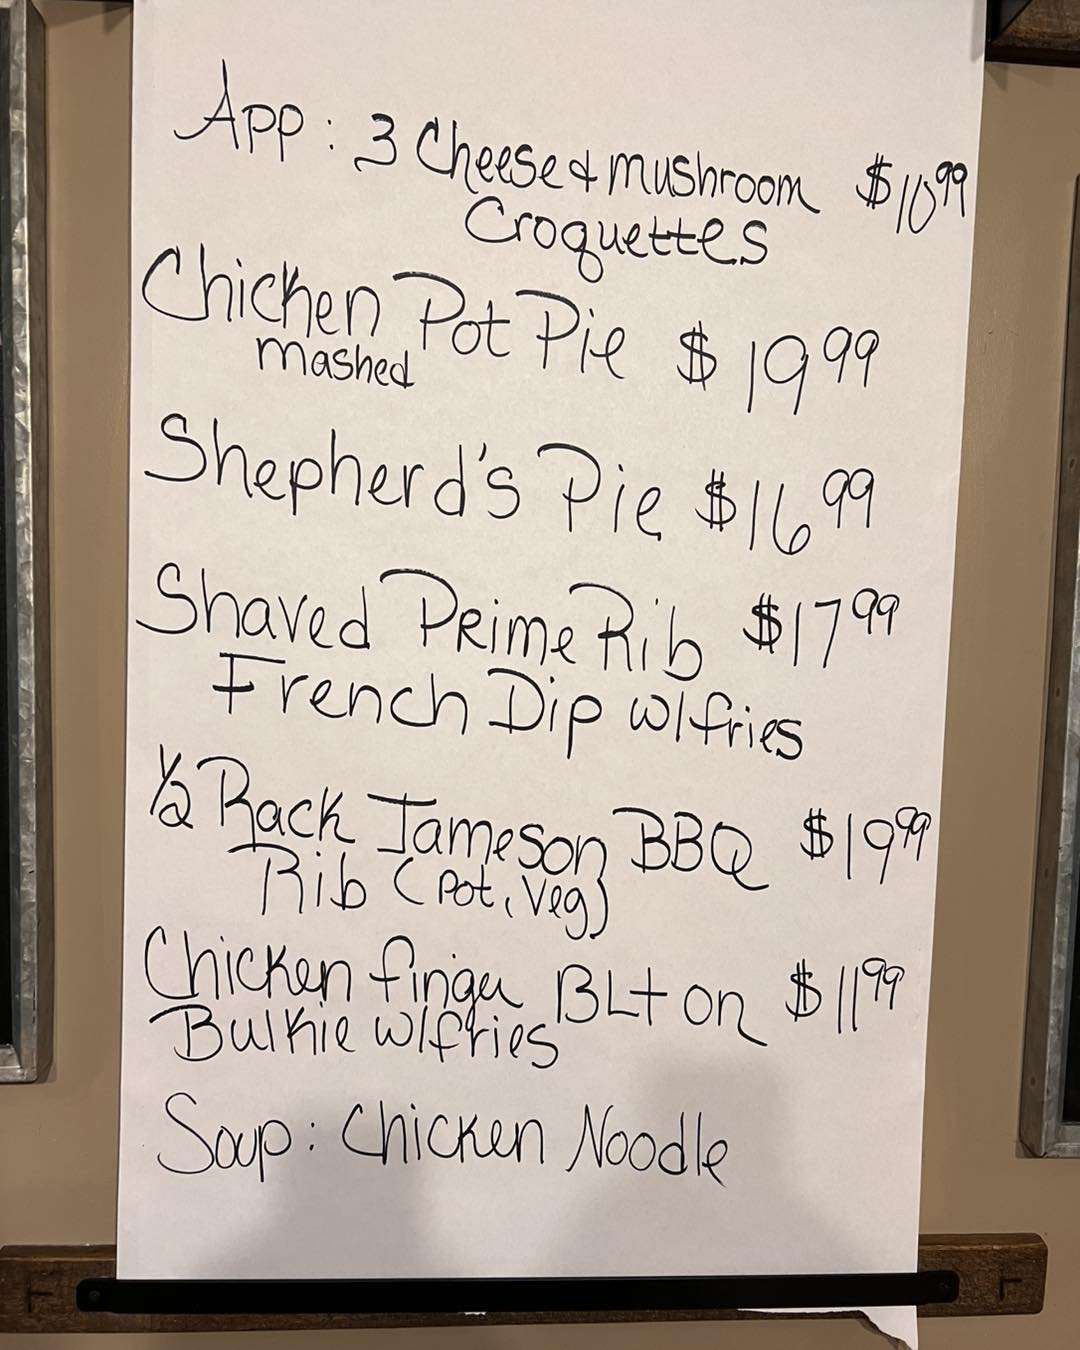 App: 3 Cheese & mushroom $10.99
Croquettes
Chicken Pot Pie $19.99
mashed
Shepherd's Pie $16.99
Shaved Prime Rib $17.99
French Dip w/fries
1/2 Rack Jameson BBQ $19.99
Rib (Pot, Veg)
Chicken finger BLT on $11.99
Bulkie w/fries
Soup: Chicken Noodle